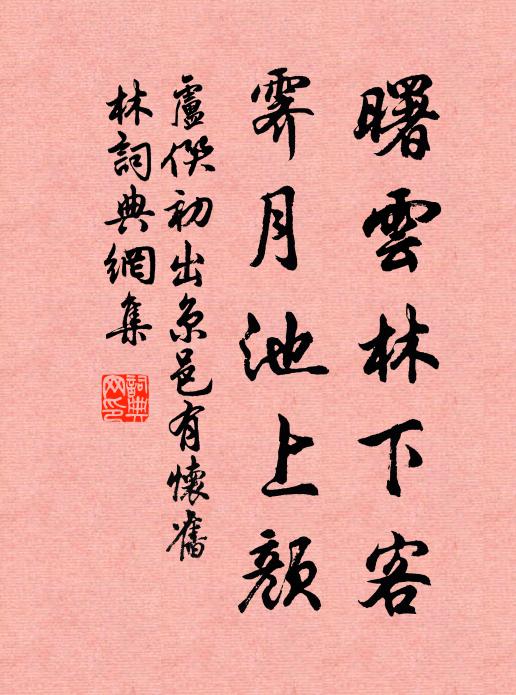 曙雲林下客
霽月池上顔
盧僎初出京邑有懷舊
林詞典網集
詞典
网印